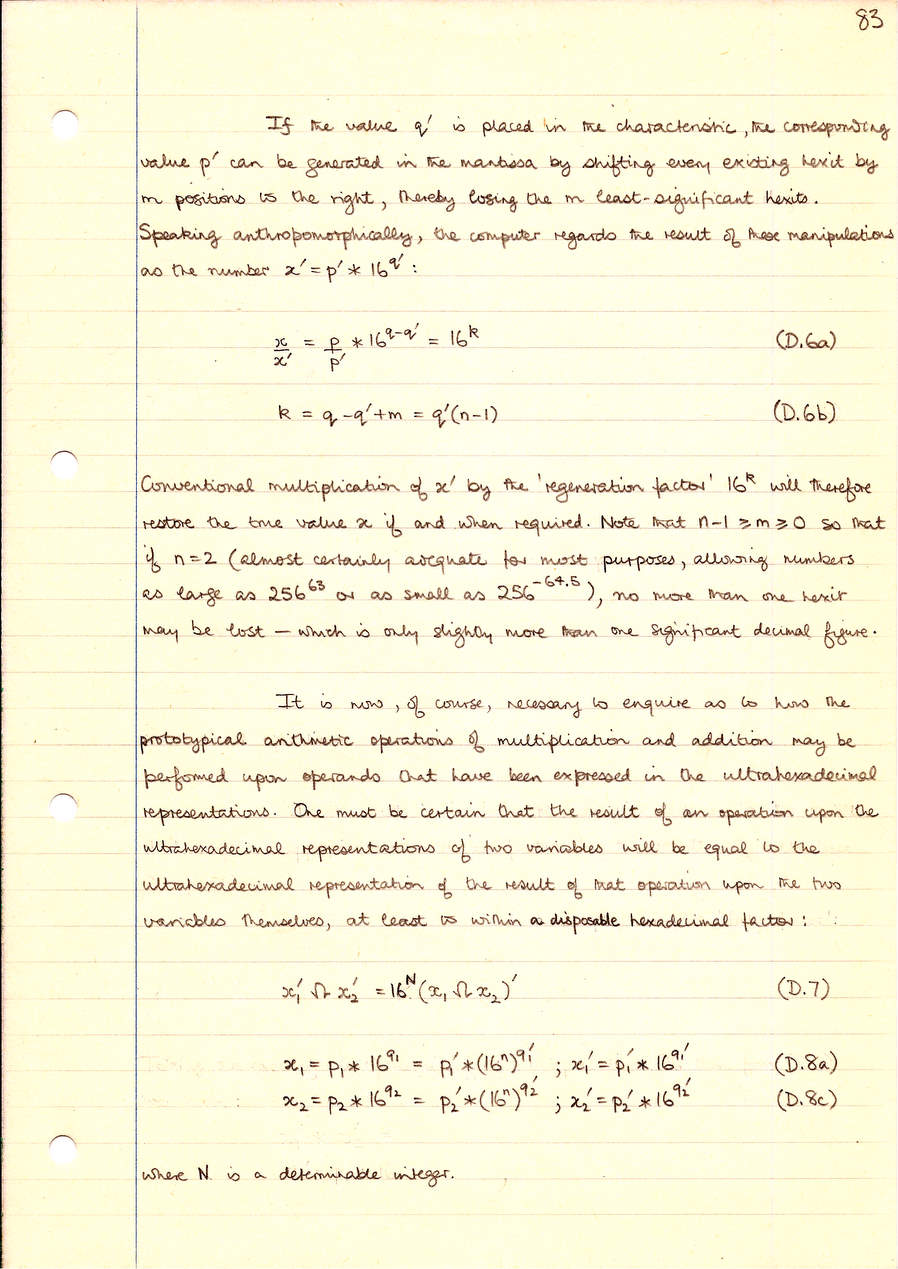 83
If the value q′ is placed in the characteristic, the corresponding
value p′ can be generated in the mantissa by shifting every existing hexit by
m positions to the right, thereby losing the m least-significant hexits.
Speaking anthropomorphically, the computer regards the result of these manipulations
as the number x′ = p′ * 16^q′ :
x/x′ = p/p′ * 16^(q-q′) = 16^k (D.6a)
k = q - q′ + m = q′(n-1) (D.6b)
Conventional multiplication of x′ by the 'regeneration factor' 16^k will therefore
restore the true value x if and when required. Note that n-1 ≥ m ≥ 0 so that
if n=2 (almost certainly adequate for most purposes, allowing numbers
as large as 256^63 or as small as 256^-64.5), no more than one hexit
may be lost — which is only slightly more than one significant decimal figure.
It is now, of course, necessary to enquire as to how the
prototypical arithmetic operations of multiplication and addition may be
performed upon operands that have been expressed in the ultrahexadecimal
representations. One must be certain that the result of an operation upon the
ultrahexadecimal representations of two variables will be equal to the
ultrahexadecimal representation of the result of that operation upon the two
variables themselves, at least to within a disposable hexadecimal factor :
x₁′ Ω x₂′ = 16^N (x₁ Ω x₂)′ (D.7)
x₁ = p₁ * 16^q₁ = p₁′ * (16^n)^q₁′ ; x₁′ = p₁′ * 16^q₁′ (D.8a)
x₂ = p₂ * 16^q₂ = p₂′ * (16^n)^q₂′ ; x₂′ = p₂′ * 16^q₂′ (D.8c)
where N is a determinable integer.